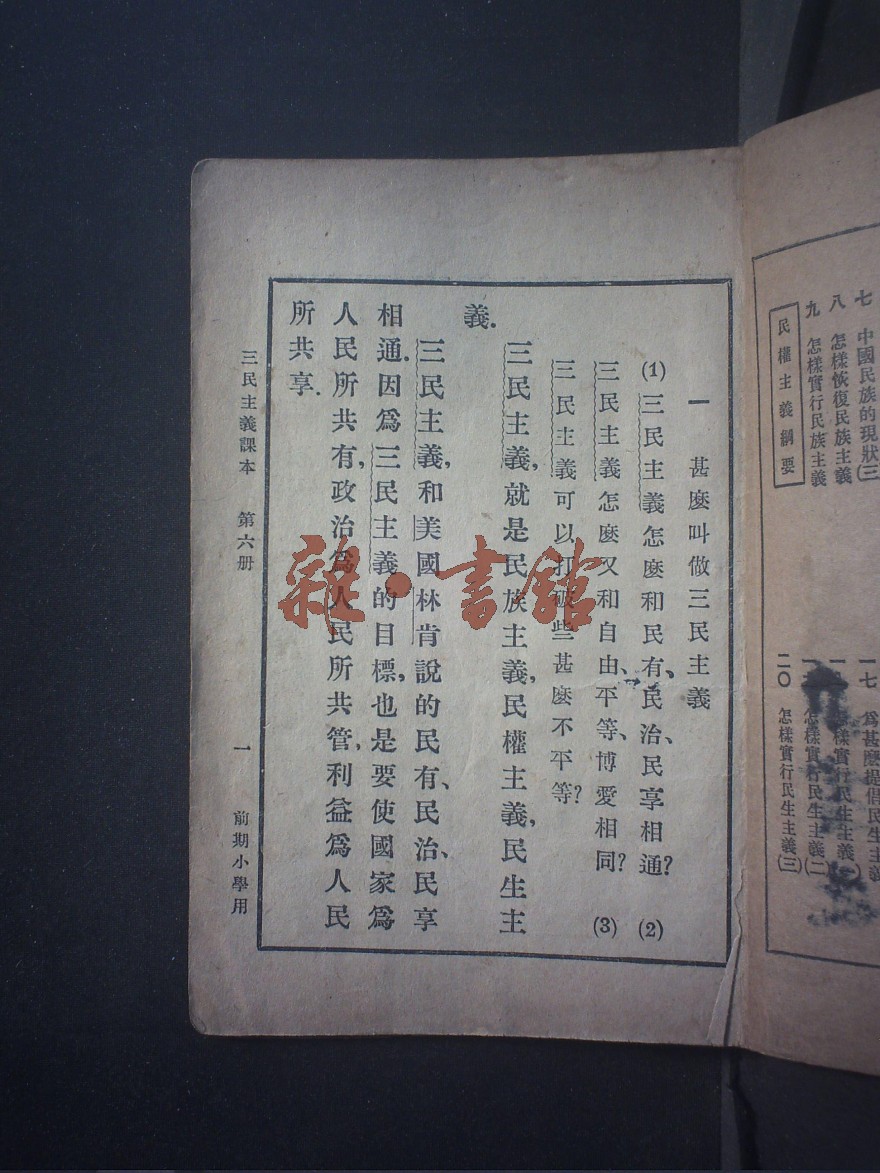 七　中國民族的現狀(三
八　怎樣恢復民族主義
九　怎樣實行民族主義
民權主義綱要
一七　爲甚麼提倡民生主義
怎樣實行民生主義
怎樣實行民生主義(二)
二〇　怎樣實行民生主義(三)
一　甚麼叫做三民主義
(1)三民主義怎麼和民有、民治、民享相通?　(2)
三民主義怎麼又和自由、平等、博愛相同?　(3)
三民主義可以打破些甚麼不平等?
三民主義,就是民族主義,民權主義,民生主
義.
三民主義,和美國林肯說的民有、民治、民享
相通.因爲三民主義的目標,也是要使國家爲
人民所共有,政治爲人民所共管,利益爲人民
所共享.
三民主義課本　第六册　一　前期小學用
雜·書館